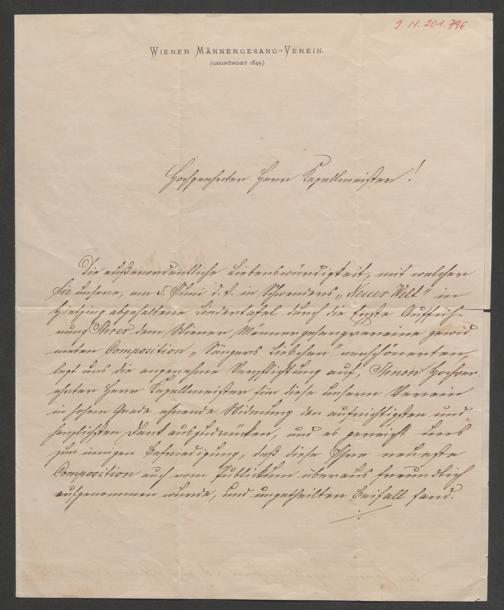 I. N. 201.796
WIENER MÄNNERGESANG-VEREIN.
(GEGRÜNDET 1843)
Hochgeehrter Herr Kapellmeister!
Die außerordentliche Liebenswürdigkeit, mit welcher
Sie unsere, am 5. Juni d. J. in Schwenders „Neuer Welt" in
Hietzing abgehaltene Liedertafel durch die Erste Auffüh-
rung Ihrer dem Wiener Männergesangvereine gewid-
meten Composition „Sängers Liebchen" verschönerten,
legt uns die angenehme Verpflichtung auf, Ihnen hochver-
ehrter Herr Kapellmeister für diese unsern Verein
in hohem Grade ehrende Widmung den aufrichtigsten und
herzlichsten Dank auszudrücken, und es gereicht uns
zur innigen Befriedigung, daß diese Ihre neueste
Composition auch vom Publikum überaus freundlich
aufgenommen wurde, und ungetheilten Beifall fand.